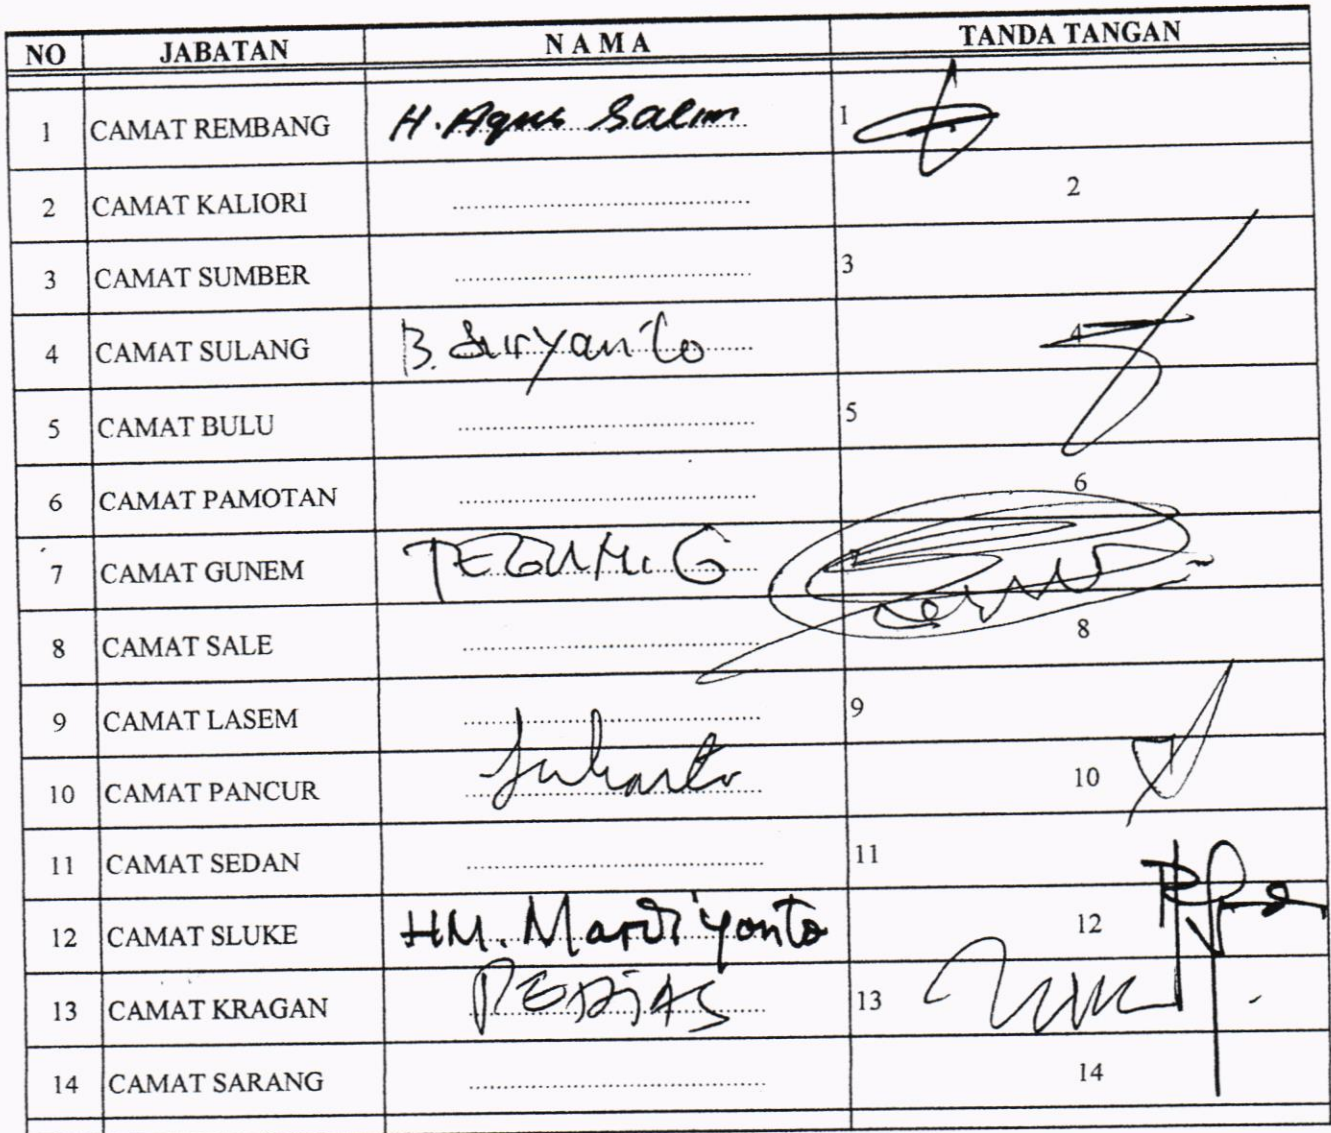 NO JABATAN N A M A TANDA TANGAN
1 CAMAT REMBANG H. Agus Salim 1
2 CAMAT KALIORI .......... 2
3 CAMAT SUMBER .......... 3
4 CAMAT SULANG B. Suryanto 4
5 CAMAT BULU .......... 5
6 CAMAT PAMOTAN .......... 6
7 CAMAT GUNEM TEGUH. G 7
8 CAMAT SALE .......... 8
9 CAMAT LASEM .......... 9
10 CAMAT PANCUR Suharto 10
11 CAMAT SEDAN .......... 11
12 CAMAT SLUKE HM. Mardiyanto 12
13 CAMAT KRAGAN 13
14 CAMAT SARANG .......... 14